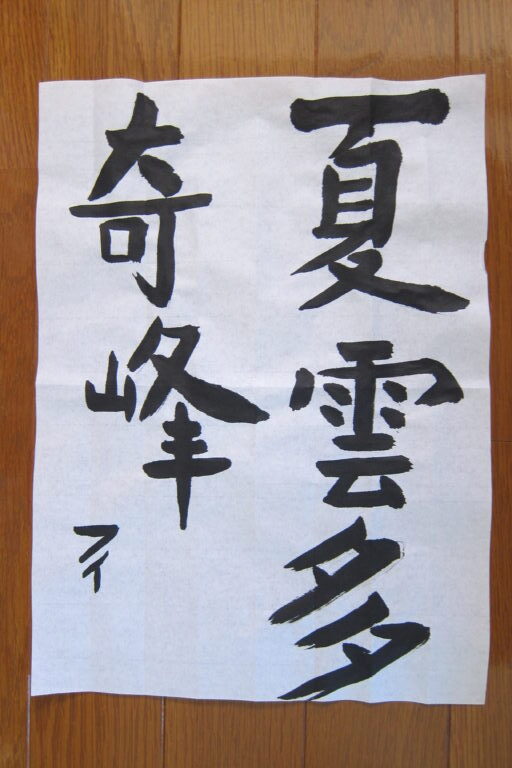 夏雲多
奇峰
フィ